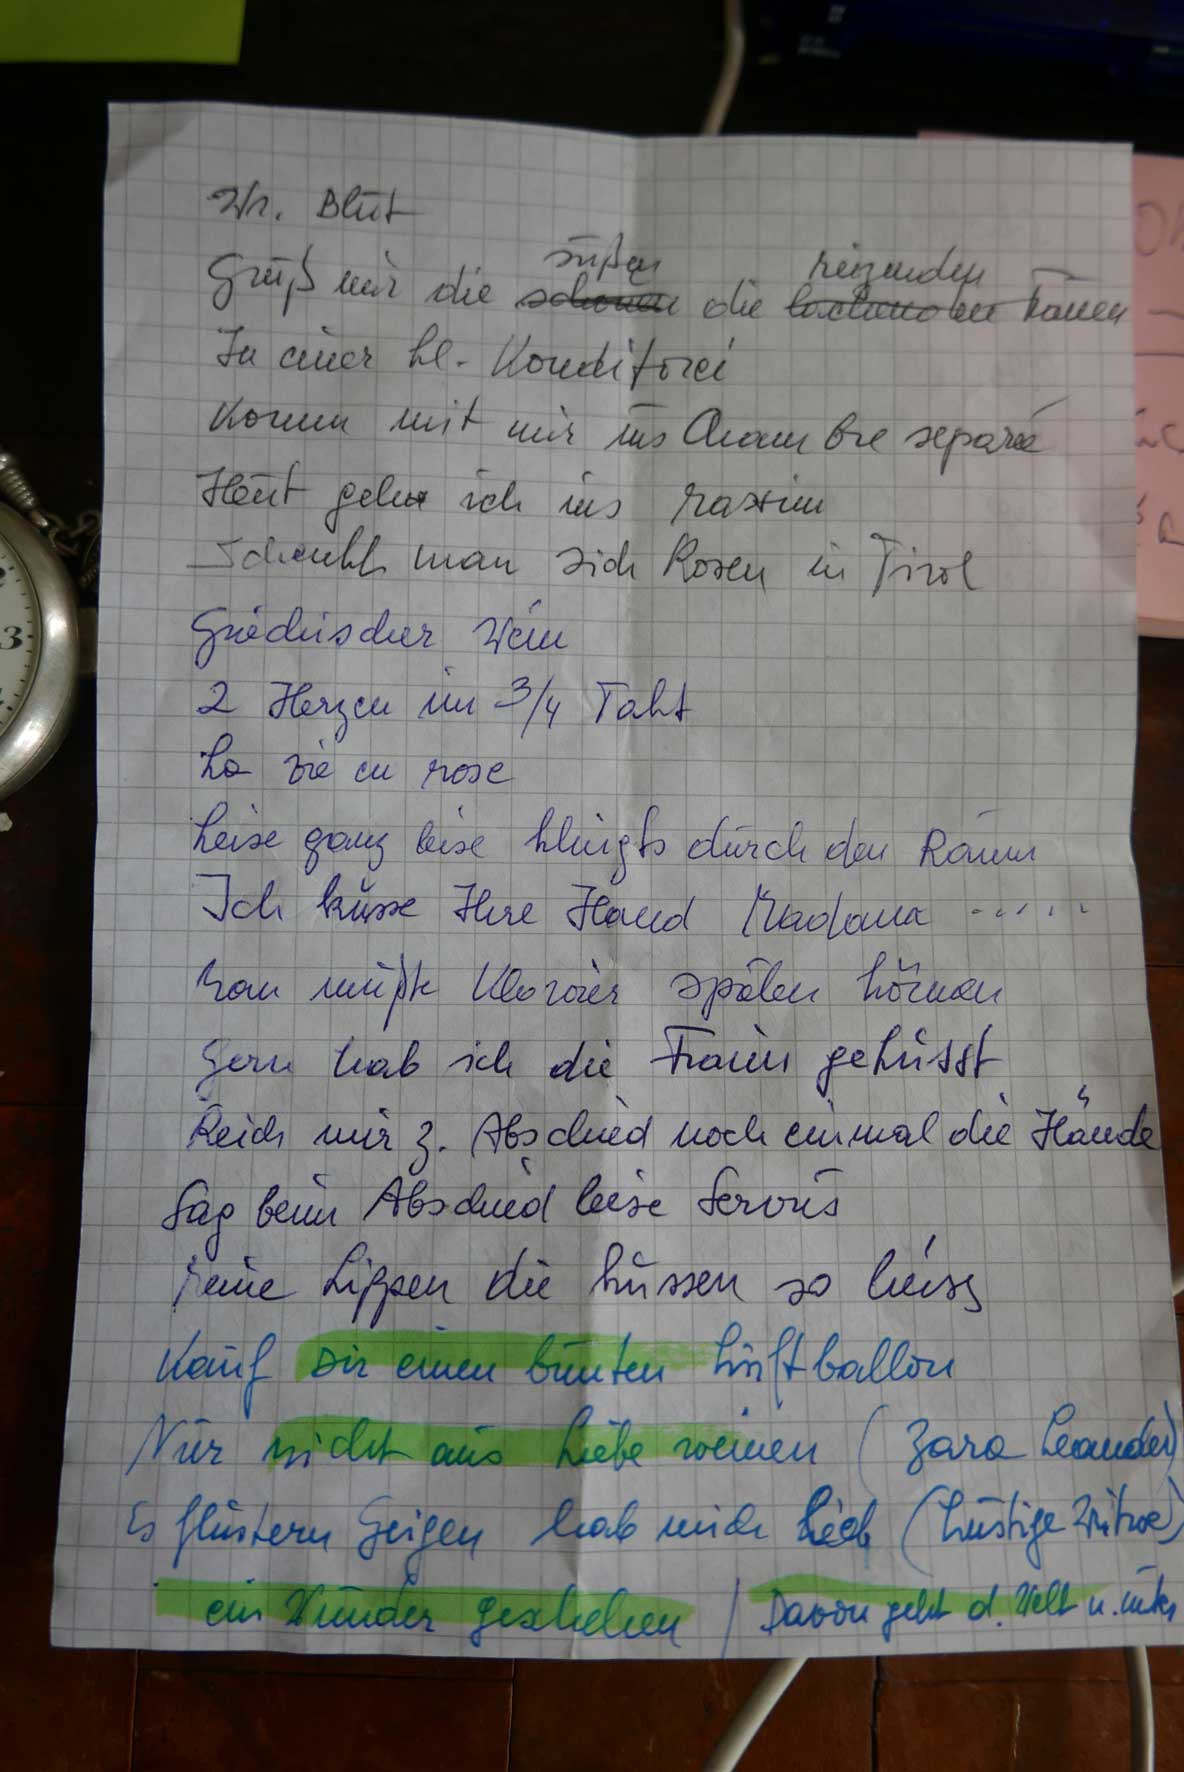 Wr. Blut
süßen reizenden
Grüß mir die schönen die lachenden Frauen
In einer kl. Konditorei
Komm mit mir ins Chambre separée
Heut geh ich ins Maxim
Schenkt man sich Rosen in Tirol
Griechischer Wein
2 Herzen im 3/4 Takt
La vie en rose
Leise ganz leise klingts durch den Raum
Ich küsse Ihre Hand Madame .....
Man müßte Klavier spielen können
Gern hab ich die Fraun geküsst
Reich mir z. Abschied noch einmal die Hände
Sag beim Abschied leise Servus
Meine Lippen die küssen so heiss
Kauf dir einen bunten Luftballon
Nur nicht aus Liebe weinen (Zara Leander)
Es flüstern Geigen hab mich lieb (Lustige Witwe)
ein Wunder geschehen / Davon geht d. Welt n. unter
3